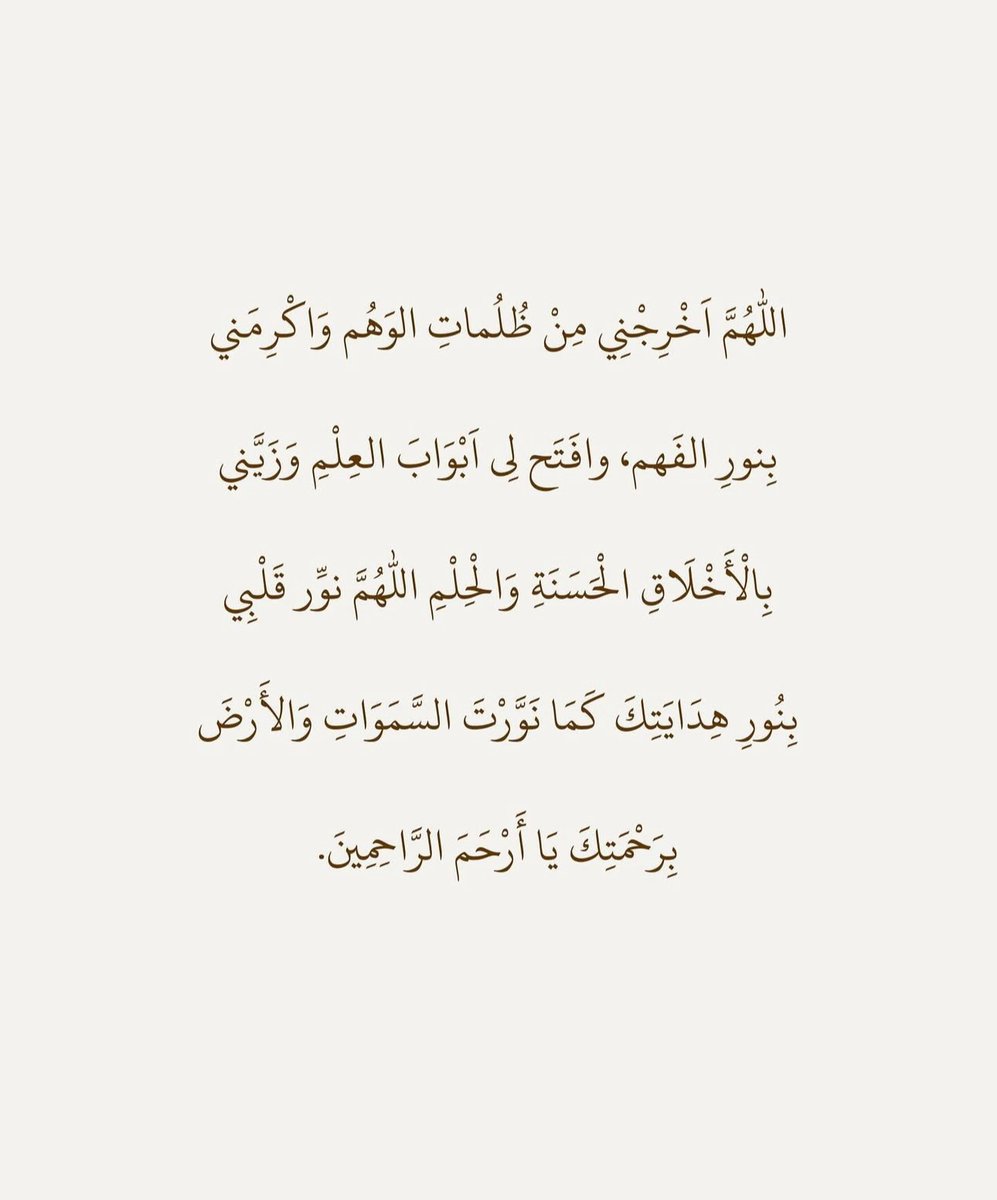 اللّٰهُمَّ اَخْرِجْنِي مِنْ ظُلُماتِ الوَهُم وَاكْرِمَني
بِنورِ الفَهم، وافَتَح لِى اَبْوَابَ العِلْمِ وَزَيَّني
بِالْأَخْلَاقِ الْحَسَنَةِ وَالْحِلْمِ اللّٰهُمَّ نوِّر قَلْبِي
بِنُورِ هِدَايَتِكَ كَمَا نَوَّرْتَ السَّمَوَاتِ وَالأَرْضَ
بِرَحْمَتِكَ يَا أَرْحَمَ الرَّاحِمِينَ.